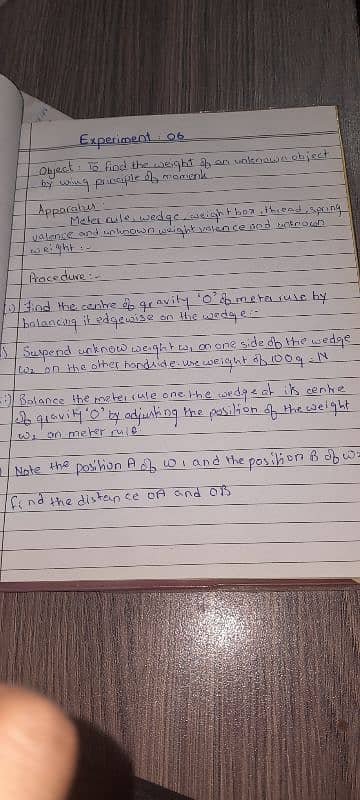 Experiment : 06
Object : To find the weight of an unknown object
by using principle of moment
Apparatus :
Meter rule, wedge, weight box, thread, spring
valence and unknown weight valence and unknown
weight :-
Procedure :-
i) Find the centre of gravity 'O' of meter rule by
balancing it edgewise on the wedge :-
Suspend unknow weight w1 on one side of the wedge
w2 on the other handside. use weight of 100g = N
Balance the meter rule one the wedge at its centre
of gravity 'O' by adjusting the position of the weight
w2 on meter rule
Note the position A of w1 and the position B of w2
find the distance OA and OB